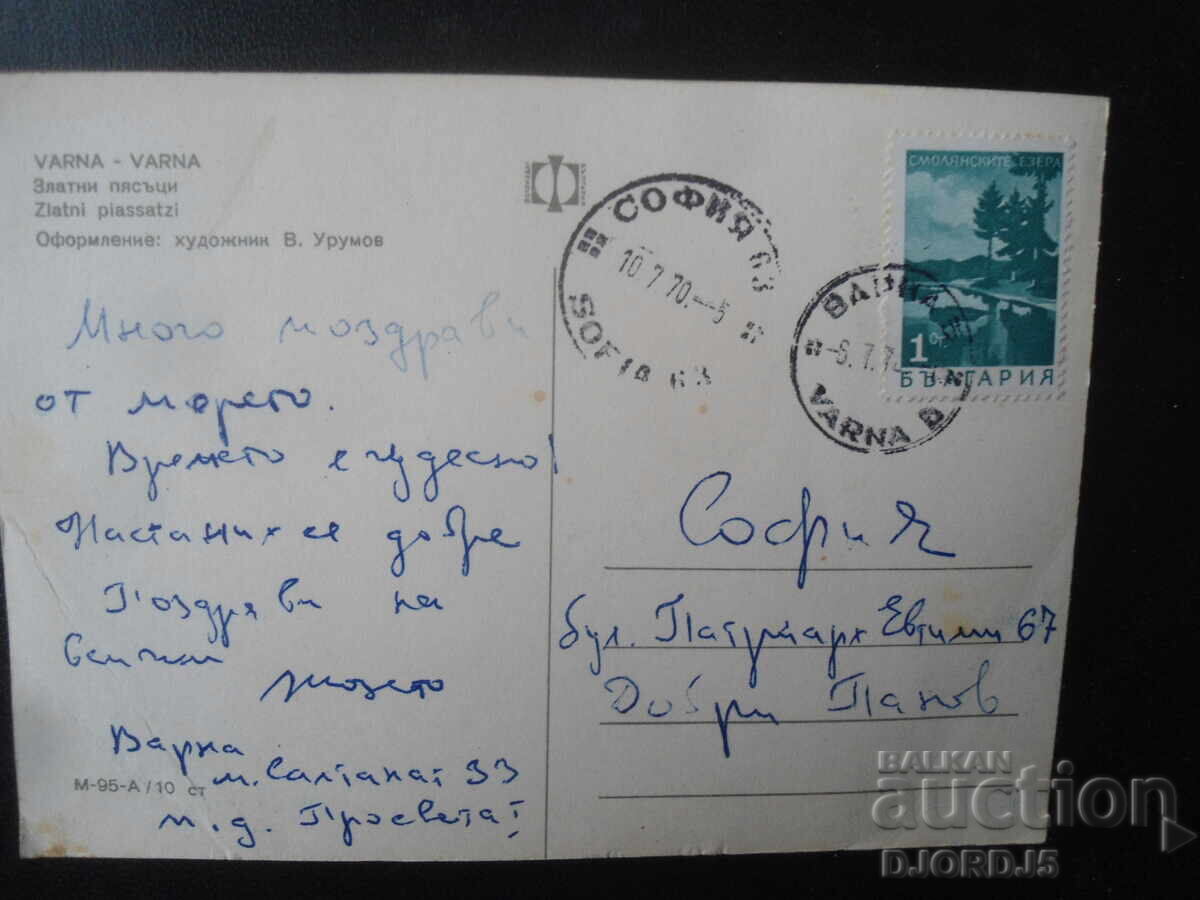 VARNA - VARNA
Златни пясъци
Zlatni piassatzi
Оформление: художник В. Урумов
СОФИЯ 63
10.7.70.--5
SOFIA 63
СМОЛЯНСКИТЕ ЕЗЕРА
1
БЪЛГАРИЯ
ВАРНА
-6.7.7
VARNA
Много поздрави
от морето.
Времето е чудесно!
Настаних се добре
Поздрави на
всички
Варна
м. Салтанат 33
п.д. Просвета
М-95-А/10 ст
София
бул. Патриарх Евтими 67
Добри Панов
BALKAN
auction
DJORDJ5